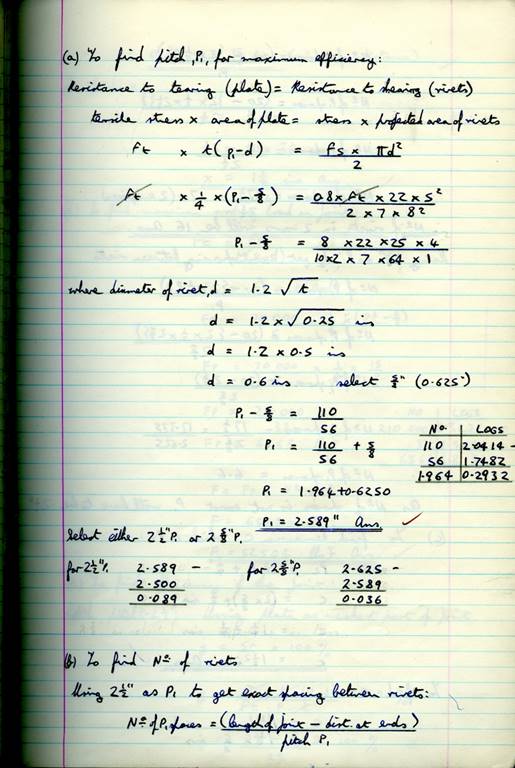 (a) To find pitch, P₁, for maximum efficiency:
Resistance to tearing (plate) = Resistance to shearing (rivets)
tensile stress × area of plate = stress × projected area of rivets
ft × t(p₁-d) = fs × πd²/2
ft × 1/4 × (P₁ - 5/8) = 0.8 × ft × 22 × 5²/2 × 7 × 8²
P₁ - 5/8 = 8 × 22 × 25 × 4/10 × 2 × 7 × 64 × 1
where diameter of rivet, d = 1.2 √t
d = 1.2 × √0.25 ins
d = 1.2 × 0.5 ins
d = 0.6 ins select 5/8" (0.625")
P₁ - 5/8 = 110/56
P₁ = 110/56 + 5/8
No. LOGS
110 2.0414 -
56 1.7482
1.964 0.2932
P₁ = 1.964 + 0.6250
P₁ = 2.589" Ans. ✓
Select either 2 1/2" P. or 2 5/8" P.
for 2 1/2" P. 2.589 - for 2 5/8" P. 2.625 -
2.500 2.589
0.089 0.036
(b) To find No of rivets
Using 2 1/2" as P₁ to get exact spacing between rivets:
No of P₁ spaces = (length of joint - dist. at ends)/pitch P₁